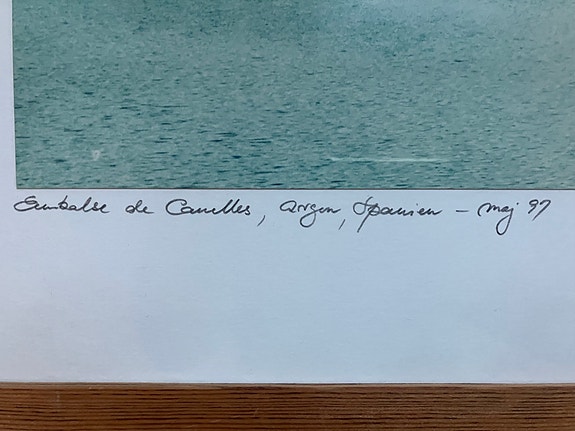 Embalse de Canelles, Argon, Spanien – maj 97